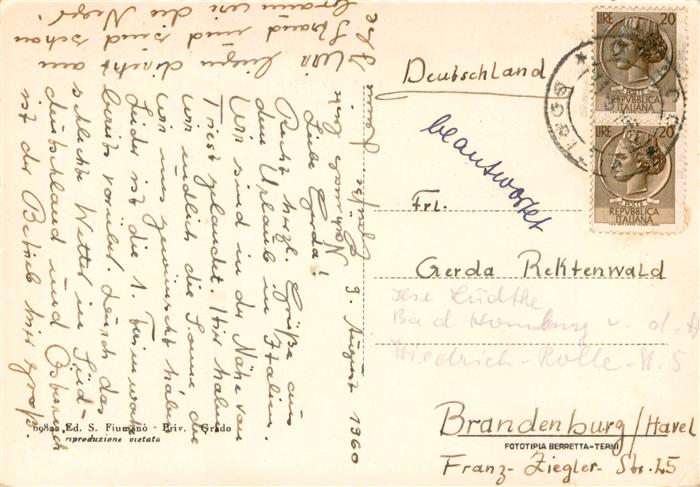 9. August 1960
Liebe Gerda!
Recht herzl. Grüße aus
dem Urlaub in Italien.
Wir sind in der Nähe von
Triest gelandet. Hier haben
wir endlich die Sonne die
wir uns gewünscht haben.
Leider ist die 1. Ferienwoche
bereits vorüber. Durch das
schlechte Wetter in Süd-
deutschland und Österreich
ist der Betrieb hier groß.
Wir liegen direkt am
Strand und sind schon
braun wie die Neger.
Deutschland
beantwortet
Frl.
Gerda Rektenwald
Ilse Lüdtke
Bad Homburg v. d. H
Friedrich-Rolle-St. 5
Brandenburg/Havel
Franz-Ziegler-Str. 25
69822 Ed. S. Fiumanò - Priv. - Grado
riproduzione vietata
FOTOTIPIA BERRETTA-TERNI
LIRE 20
POSTE
REPVBBLICA
ITALIANA
LIRE 20
POSTE
REPVBBLICA
ITALIANA